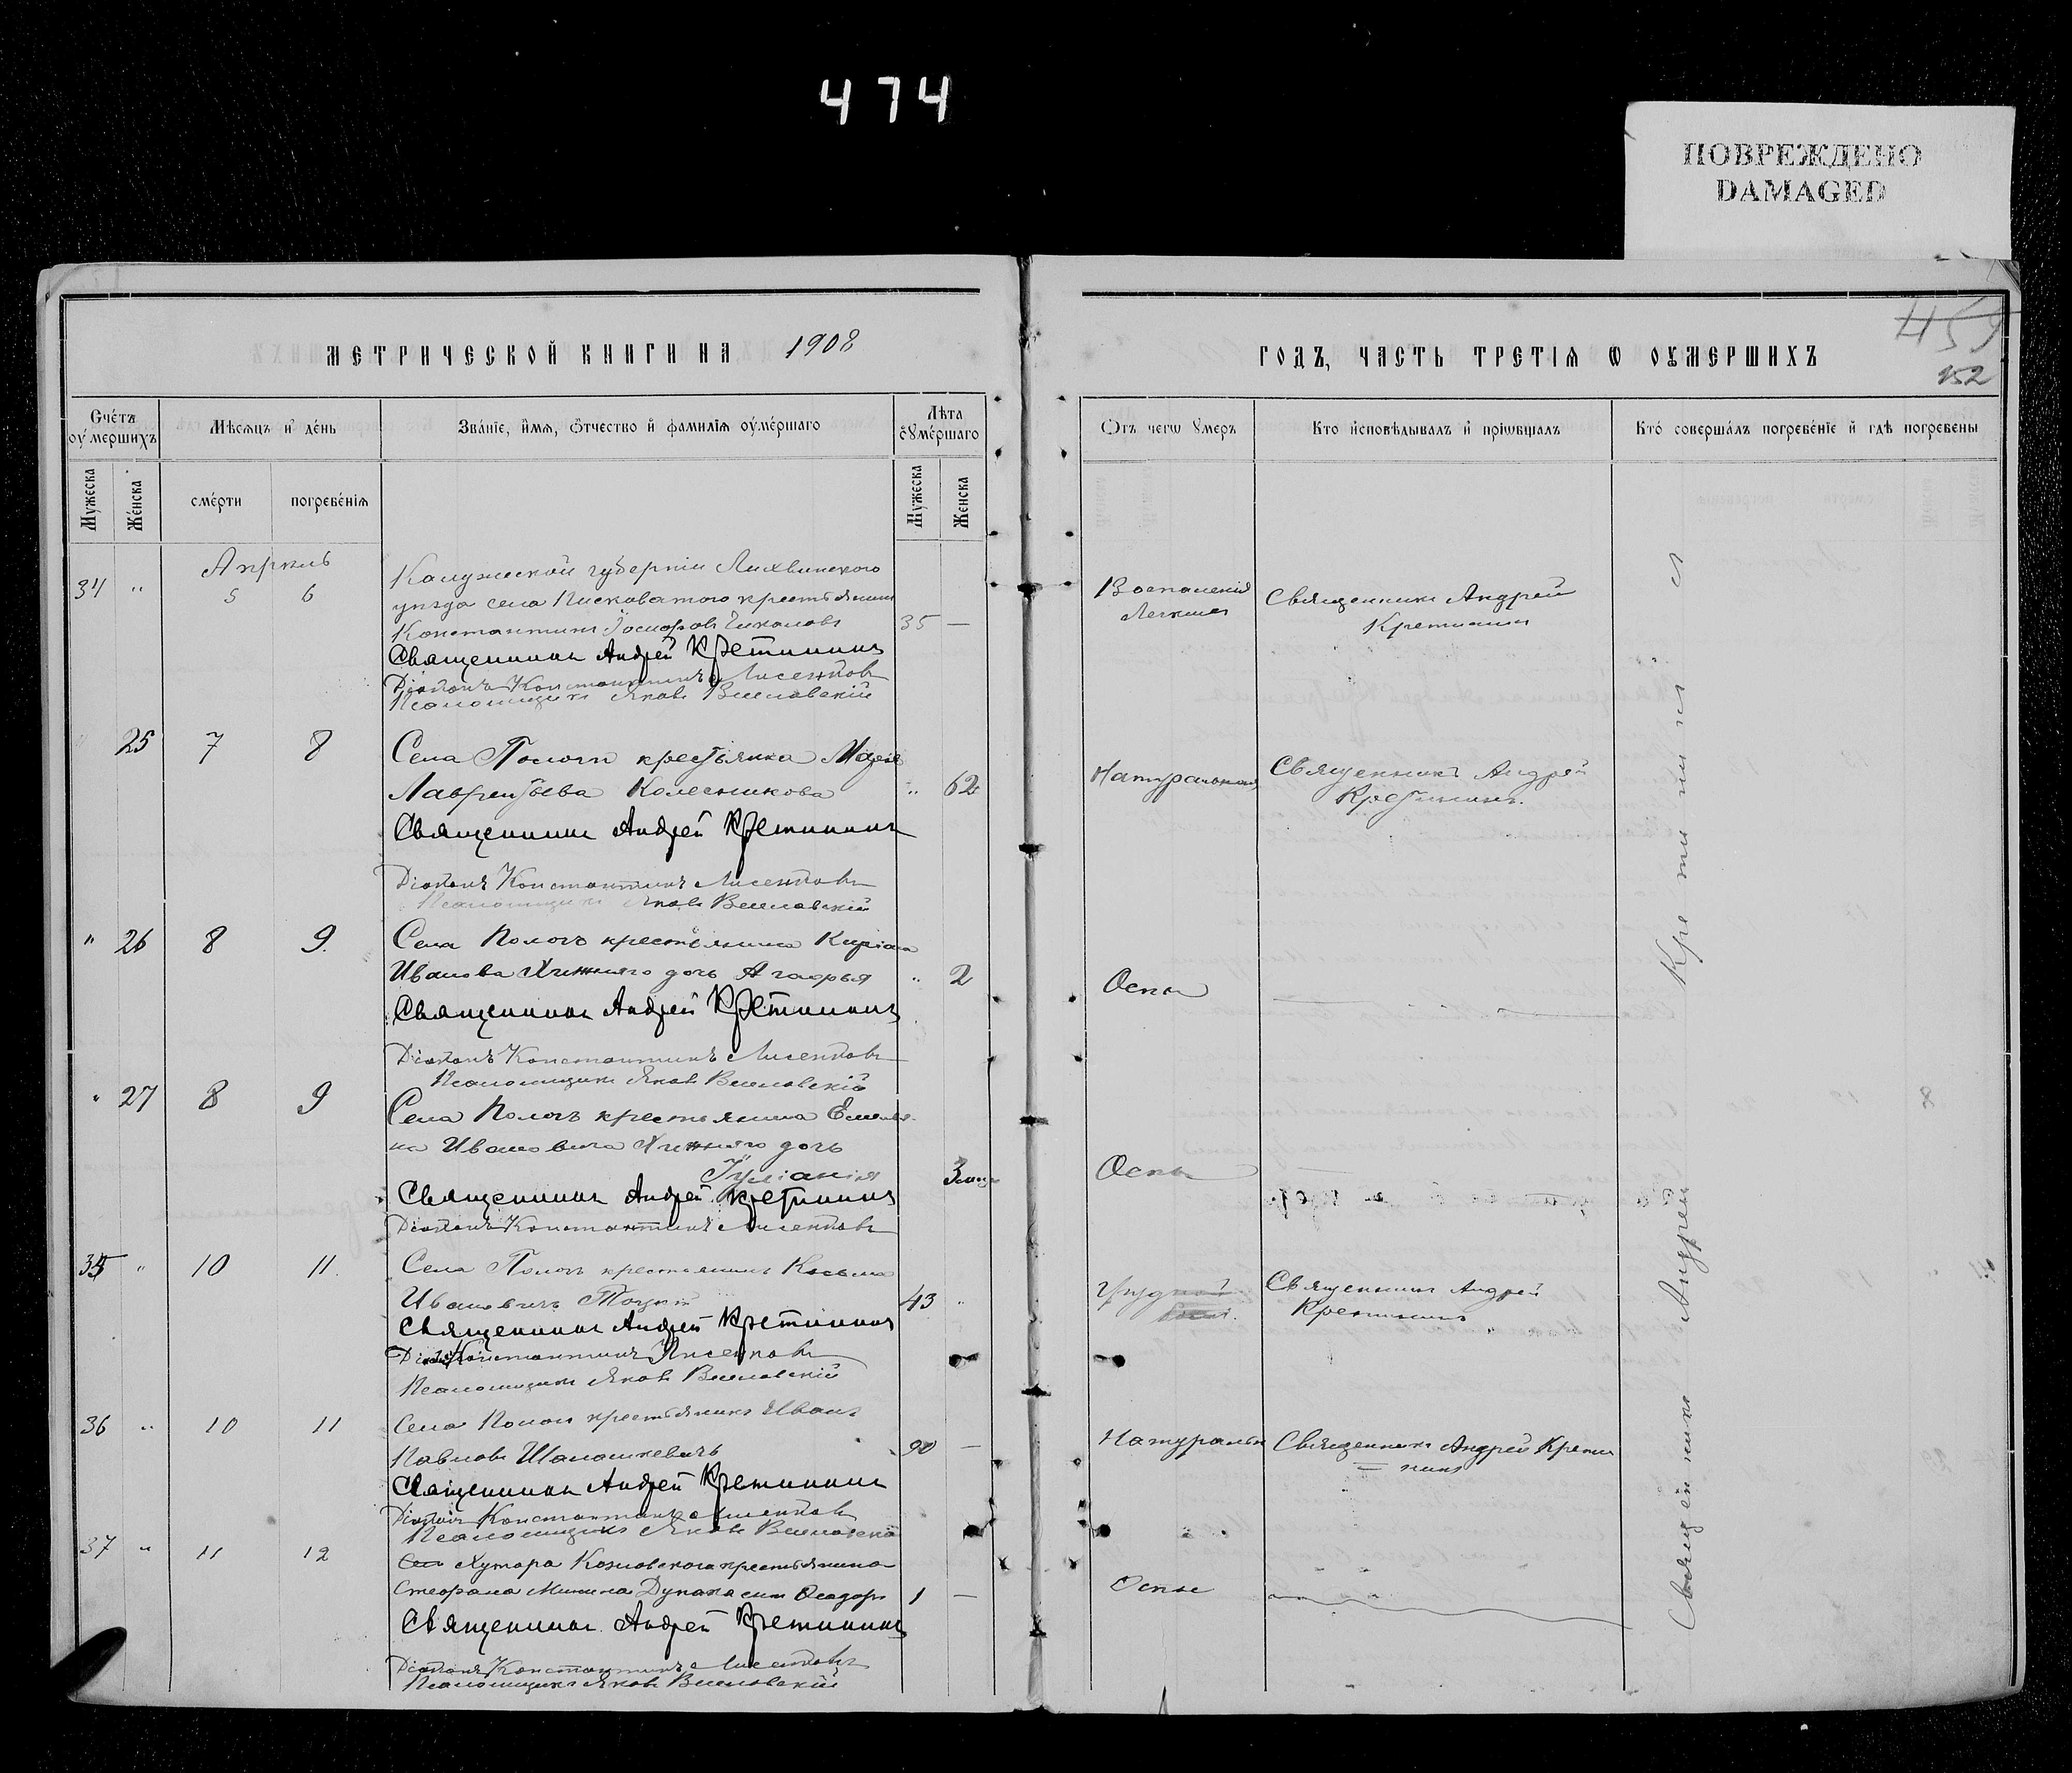 474
ПОВРЕЖДЕНО
DAMAGED
МЕТРИЧЕСКОЙ КНИГИ НА 1908
ГОДЪ, ЧАСТЬ ТРЕТІЯ Ѡ ОУМЕРШИХЪ
459
152
Счётъ оумершихъ
Мѣсяцъ и день
Званіе, имя, отчество и фамилія оумершаго
Лѣта оумершаго
Отъ чегѡ умеръ
Кто исповѣдывалъ и пріѡбщалъ
Кто совершалъ погребеніе и гдѣ погребены
Мужеска
Женска
смерти
погребенія
Мужеска
Женска
Апрѣль
34 " 5 6 Калужской губерніи Лихвинского
уѣзда села Песковатого крестьянинъ
Константинъ Іосифовъ 35 —
Воспаленія
Легкихъ
Священникъ Андрей
Кретининъ
Священникъ Андрей Кретининъ
Діаконъ Константинъ Лисенковъ
Псаломщикъ Яковъ
" 25 7 8 Села Пологи крестьянка Марія
Лаврентьева Колесникова " 62
Натуральная
Священникъ Андрей
Кретининъ.
Священникъ Андрей Кретининъ
Діаконъ Константинъ Лисенковъ
Псаломщикъ Яковъ
" 26 8 9. Села Пологъ крестьянина
Иванова Хижняго дочь Агафья " 2
Оспы
Священникъ Андрей Кретининъ
Діаконъ Константинъ Лисенковъ
Псаломщикъ Яковъ
" 27 8 9 Села Пологъ крестьянина Емелья-
на Ивановича Хижняго дочь
Іуліанія 3
Оспы
Священникъ Андрей Кретининъ
Діаконъ Константинъ Лисенковъ
35 " 10 11. Села Пологъ крестьянинъ Косьма
Ивановичъ 43 "
Грудной
Священникъ Андрей
Кретининъ
Священникъ Андрей Кретининъ
Діаконъ Константинъ Лисенковъ
Псаломщикъ Яковъ
36 " 10 11 Села Пологи крестьянинъ Иванъ
Павловъ 90 —
Натуральн
Священникъ Андрей Крети
нинъ
Священникъ Андрей Кретининъ
Діаконъ Константинъ Лисенковъ
Псаломщикъ Яковъ
37 " 11 12 Хутора Козловского крестьянина
Стефана сын Феодоръ 1 —
Оспы
Священникъ Андрей Кретининъ
Діаконъ Константинъ Лисенковъ
Псаломщикъ Яковъ
Священникъ Андрей Кретинин